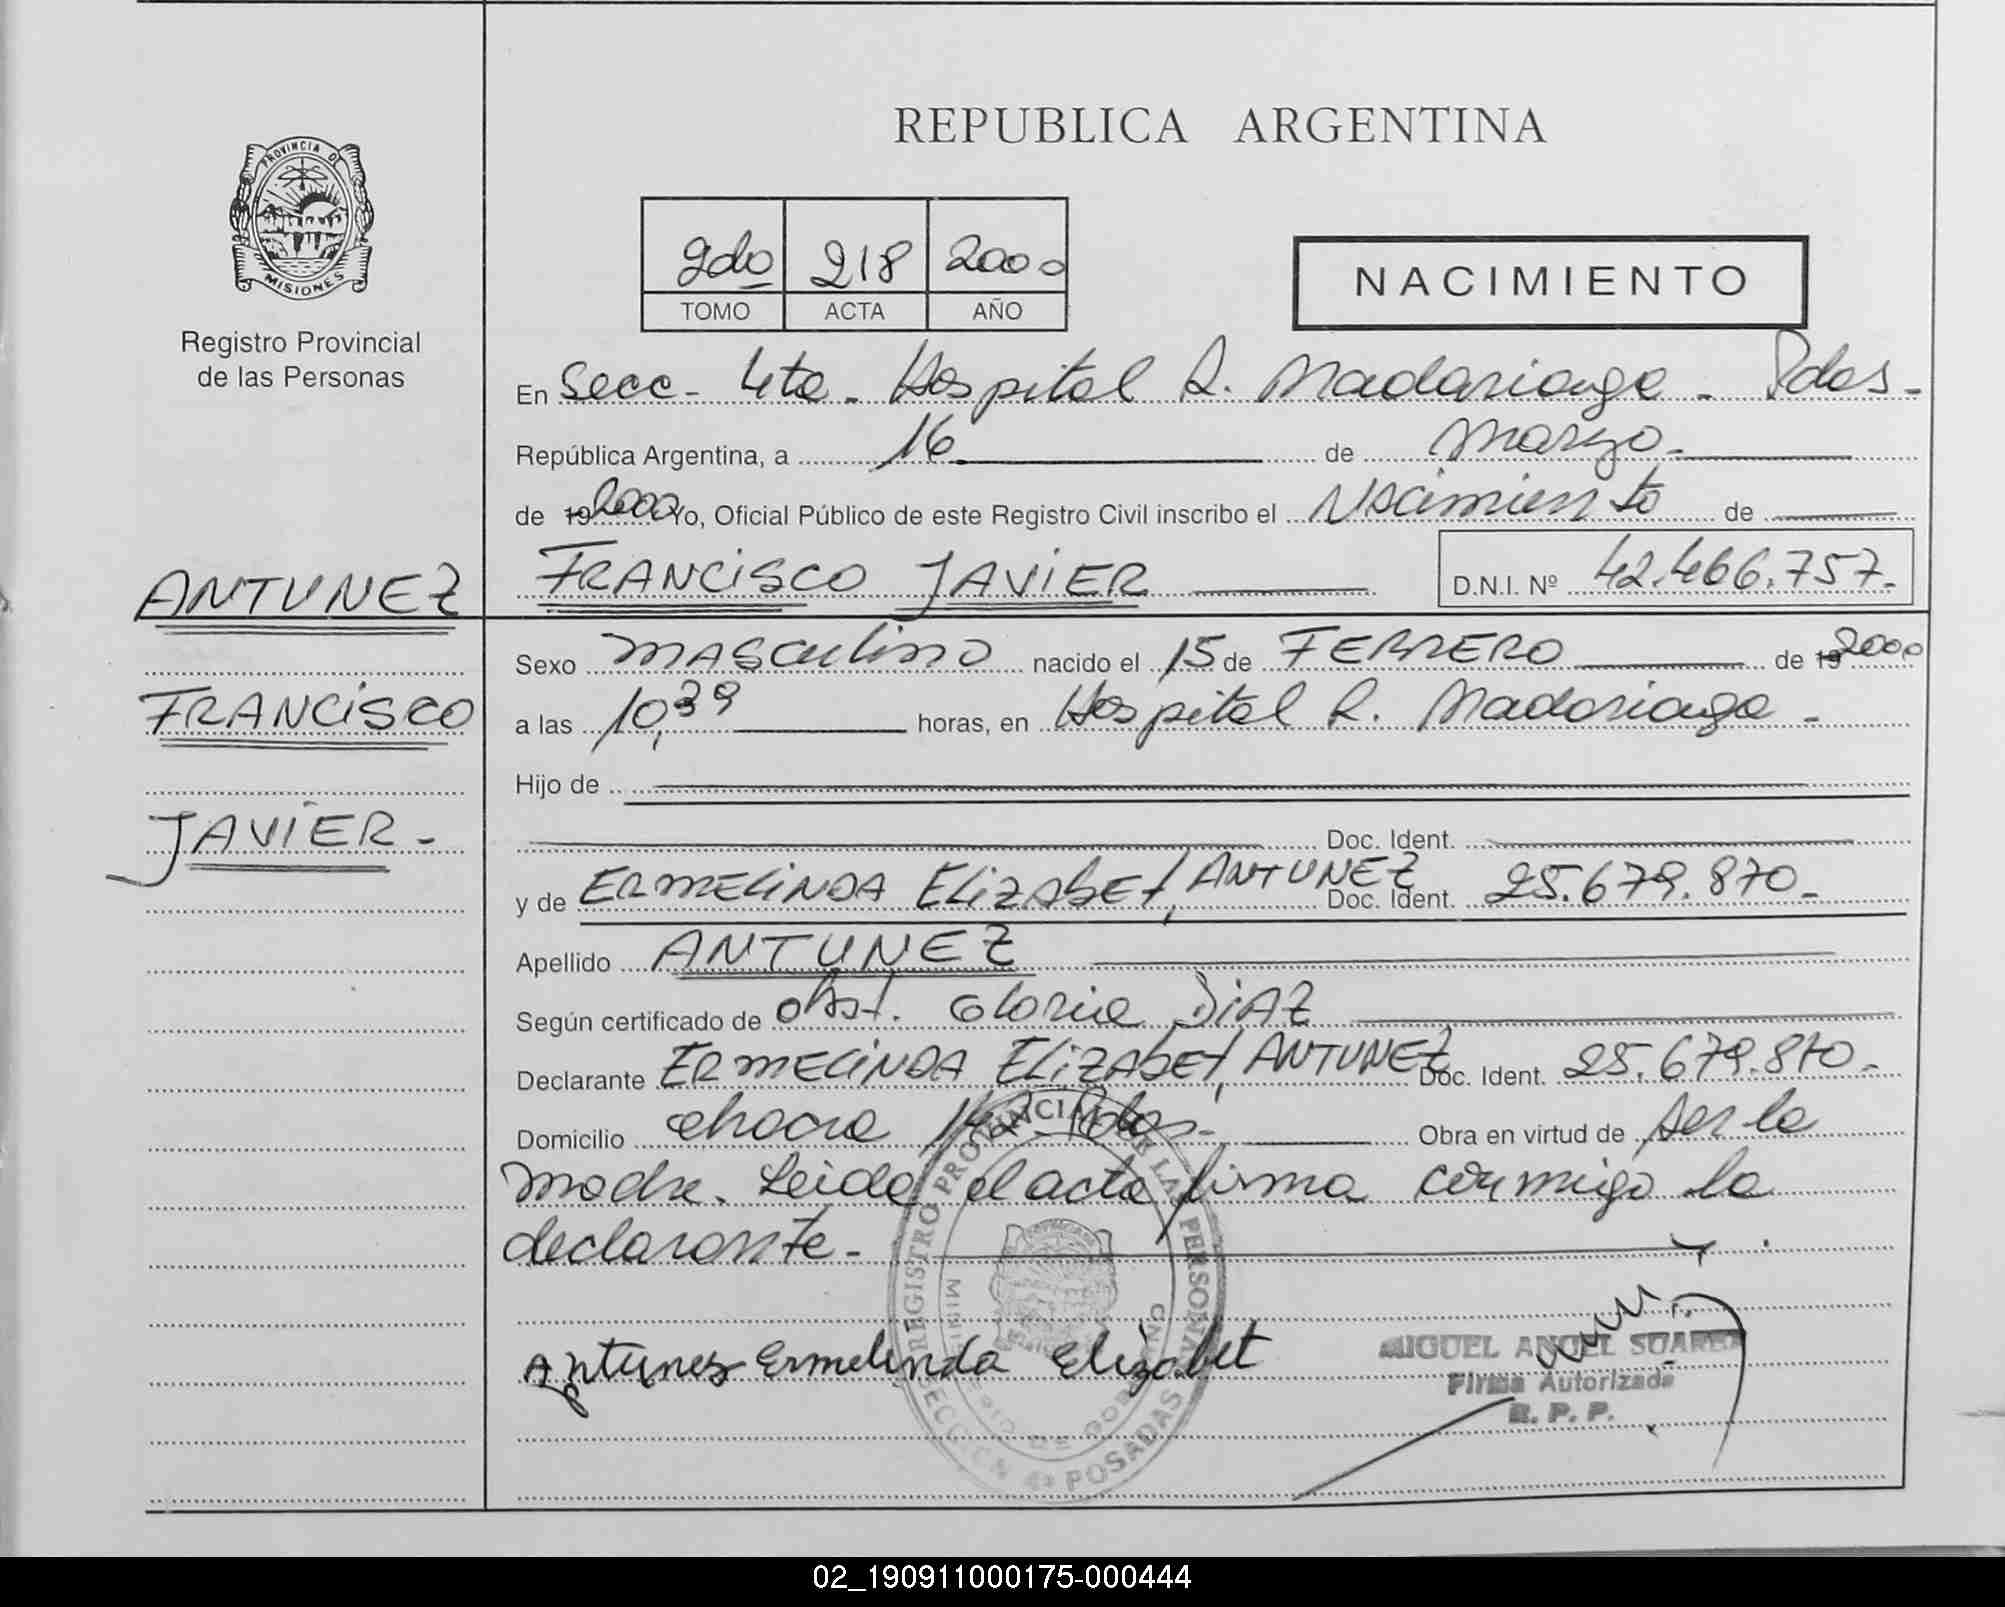 REPUBLICA ARGENTINA
PROVINCIA DE
MISIONES
Registro Provincial
de las Personas
2do 218 2000
TOMO ACTA AÑO
NACIMIENTO
En Secc- 4ta- Hospital R. Madariaga- Pdas-
República Argentina, a 16 de Marzo-
de 19 2000 Yo, Oficial Público de este Registro Civil inscribo el Nacimiento de
ANTUNEZ FRANCISCO JAVIER D.N.I. Nº 42.466.757-
Sexo MASCULINO nacido el 15 de FEBRERO de 19 2000
FRANCISCO
a las 10,39 horas, en Hospital R. Madariaga-
Hijo de
JAVIER-
Doc. Ident.
y de ERMELINDA ELIZABET, ANTUNEZ Doc. Ident. 25.679.870-
Apellido ANTUNEZ
Según certificado de Obst. Gloria DIAZ
Declarante ERMELINDA ELIZABET, ANTUNEZ Doc. Ident. 25.679.870-
Domicilio chacra 142 Pdas- Obra en virtud de ser la
madre. Leida el acta firma conmigo la
declarante-
REGISTRO PROVINCIAL DE LAS PERSONAS
MINISTERIO DE GOBIERNO
SECCION 4a POSADAS
Antunez Ermelinda Elizabet
MIGUEL ANGEL SUAREZ
Firma Autorizada
R. P. P.
02_190911000175-000444